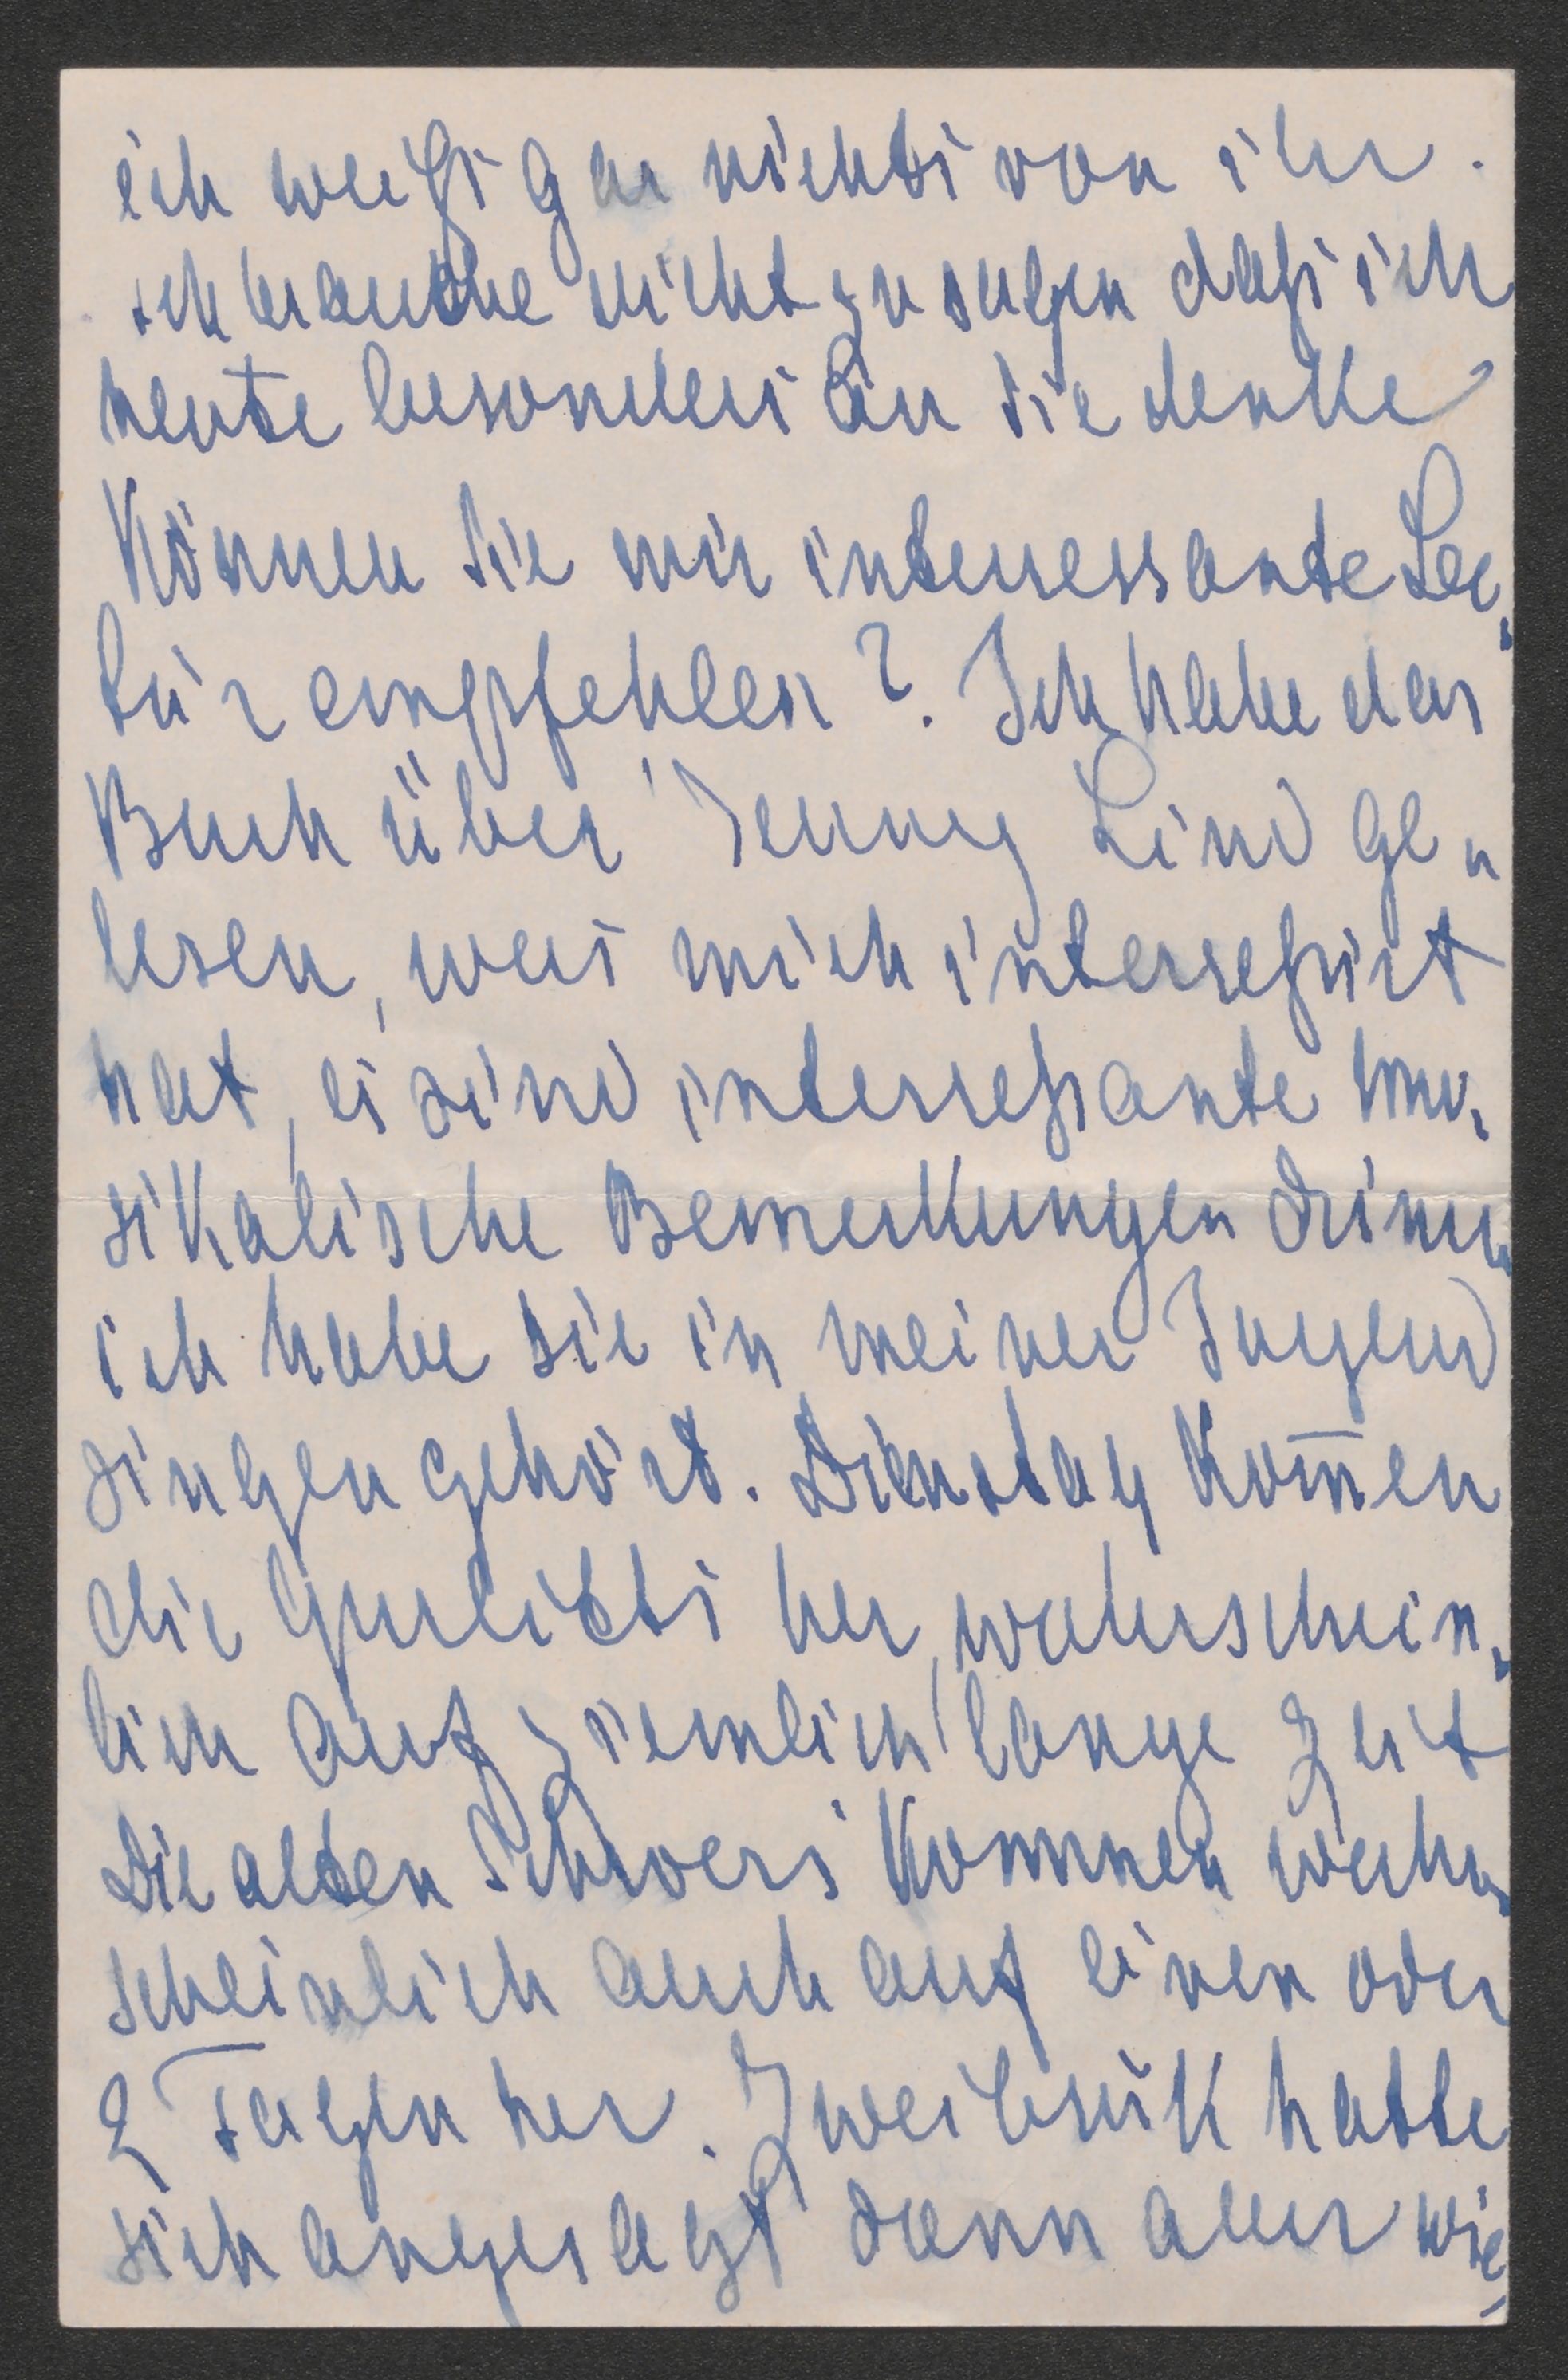 ich weiß gar nichts von ihr.
ich brauche nicht zu sagen daß ich
heute besonders an Sie denke
Können Sie mir interressante Lec-
tür empfehlen?. Ich habe das
Buch über Jenny Lind ge-
lesen, was mich interreßirt
hat, es sind interreßante mu-
sikalische Bemerkungen drinn
ich habe sie in meiner Jugend
singen gehört. Dienstag kom̅en
die Gurlitts her, wahrschein-
lich auf ziemlich lange Zeit
Die alten Schwers kommen wahr-
scheinlich auch auf einen oder
2 Tagen her. Zweibrük hatte
sich angesagt dann aber wie-